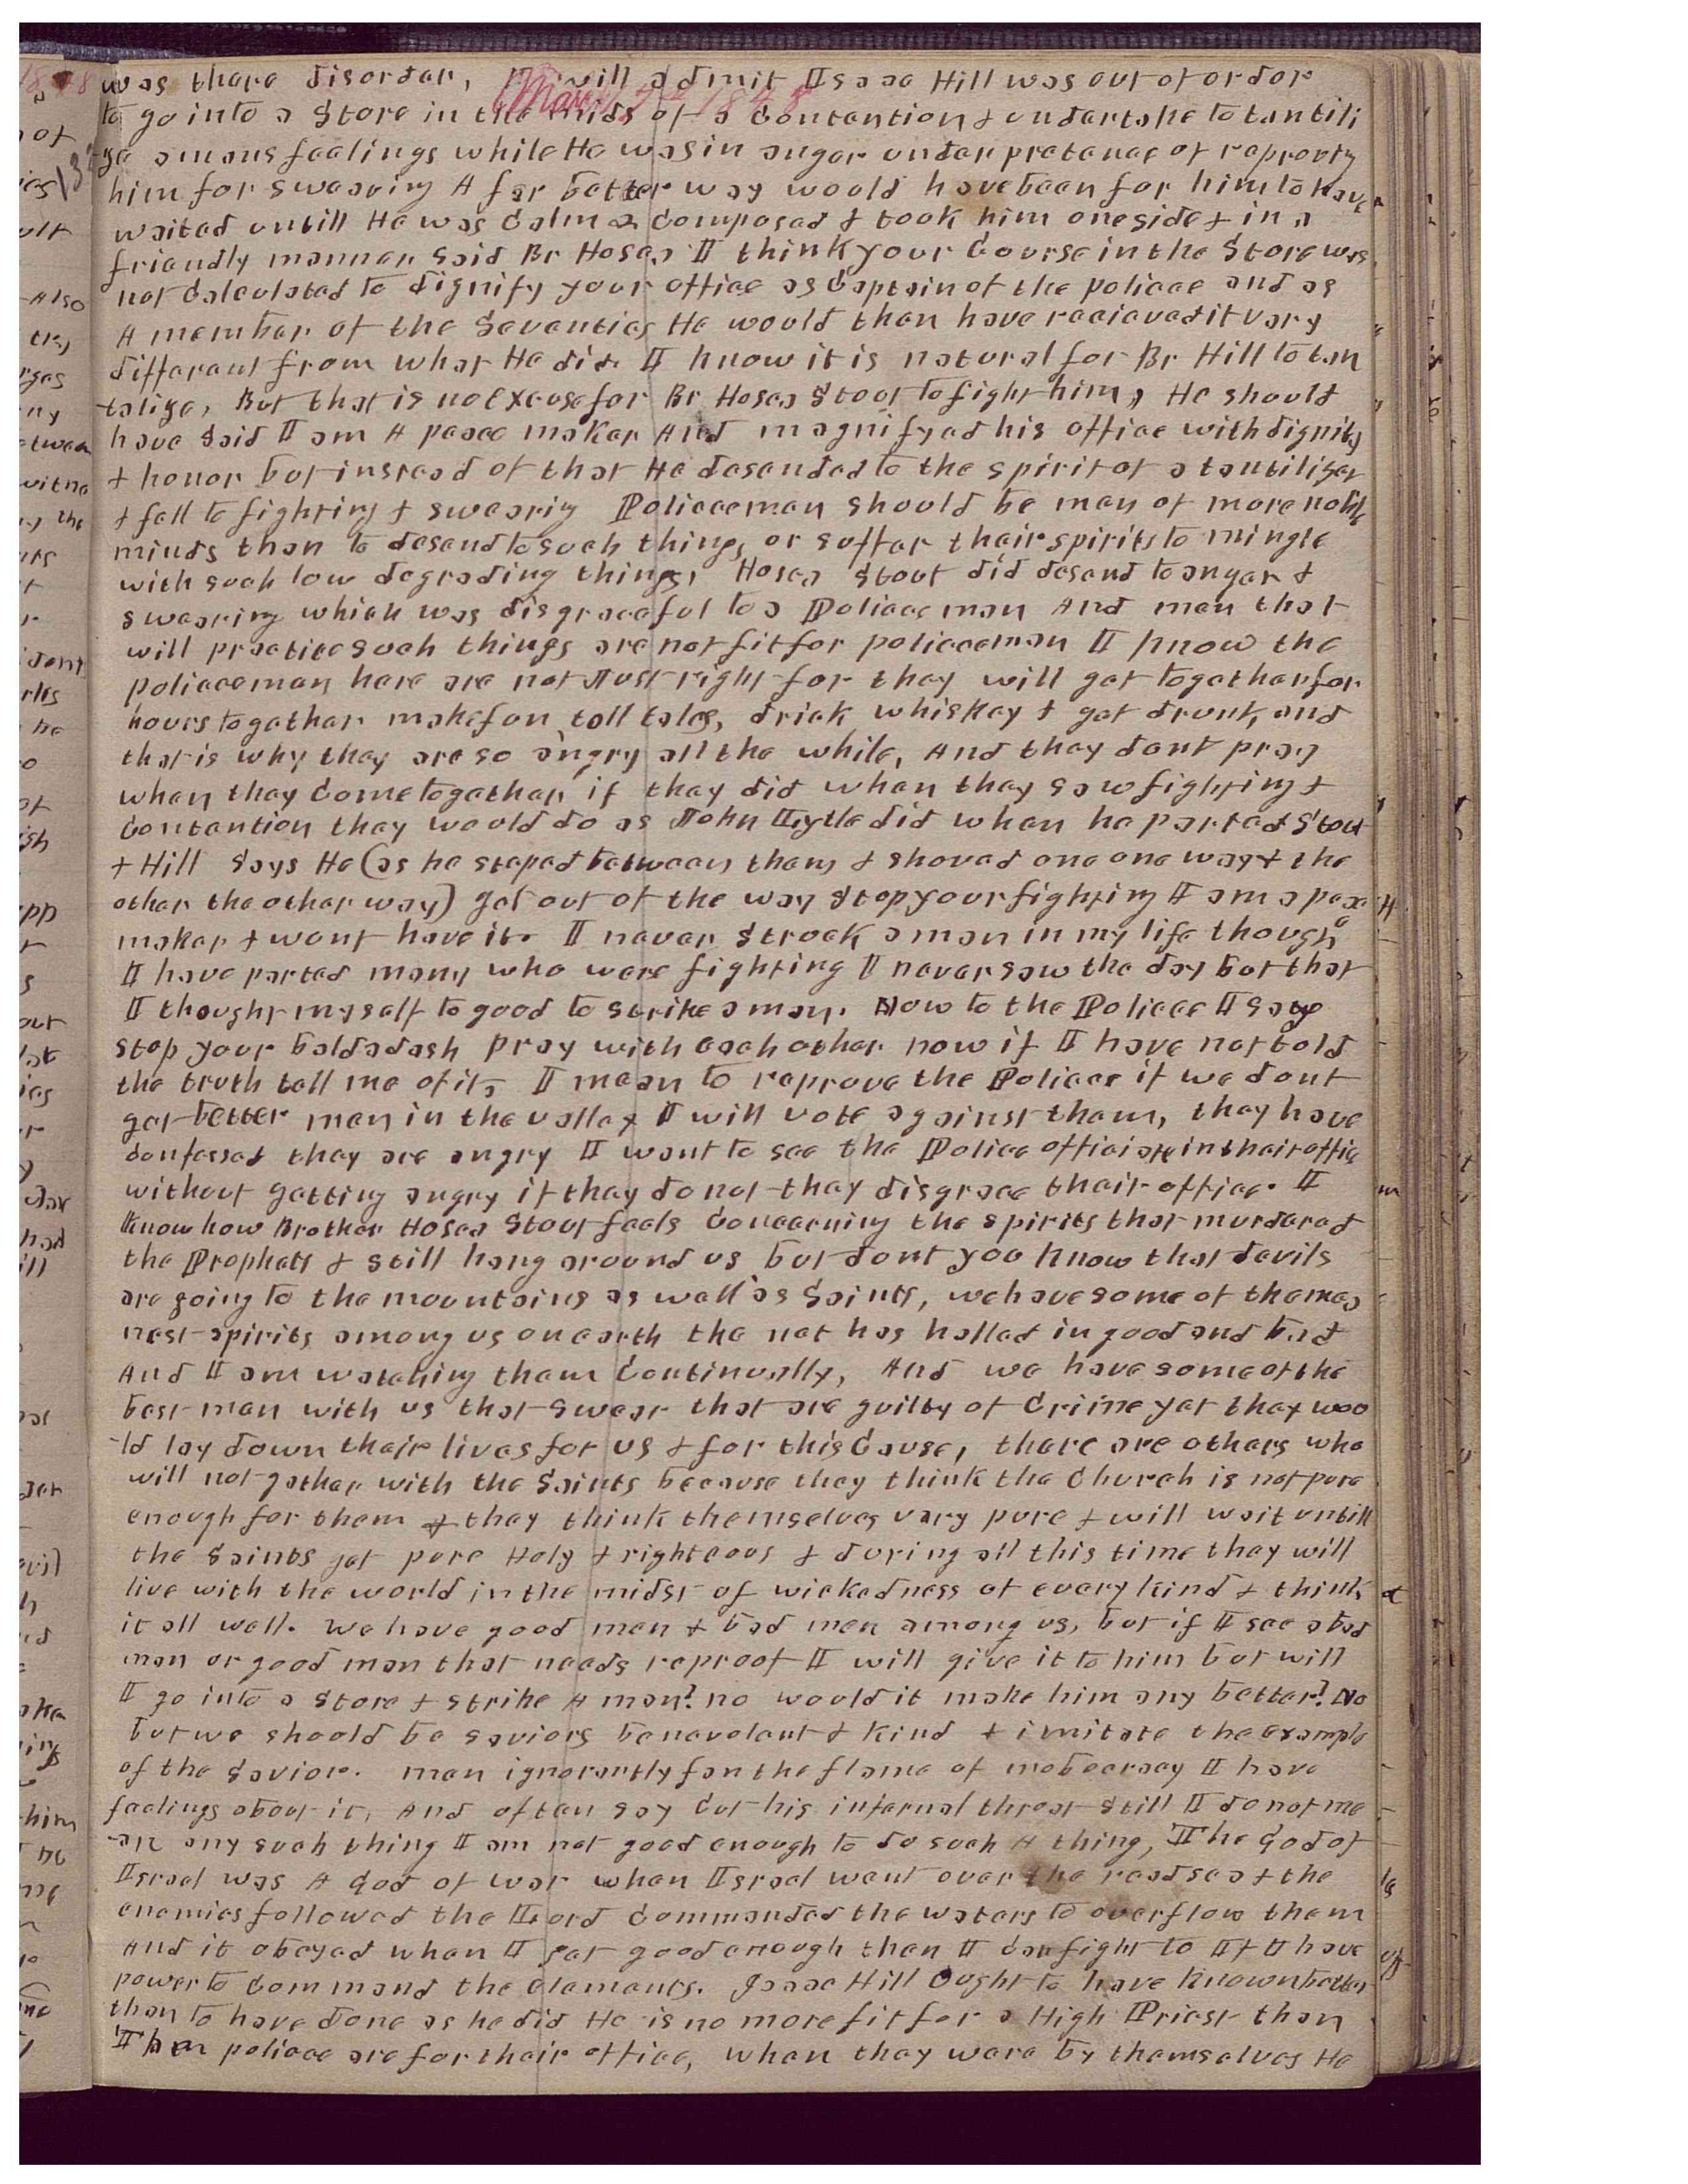 was there disorder, I will admit Isaac Hill was out of order
March 7th 1848
to go into a Store in the mids of a Contention & undertake to tantili
ze a mans feelings while He was in anger under pretence of reproving
him for swearing A far better way would have been for him to have
waited untill He was Calm & Composed & took him one side & in a
friendly manner said Br Hosea I think your Course in the Store was
not Calculated to dignify your office as Captain of the police and as
A member of the Seventies He would then have recieved it very
different from what He did. I know it is natural for Br Hill to tan
talize, But that is no excuse for Br Hosea Stout to fight him, He should
have said I am A peace maker And magnifyed his office with dignity
& honor but instead of that He desended to the spirit of a tantilizer
& fell to fighting & swearing Policeeman should be men of more noble
minds than to desend to such things or suffer their spirits to mingle
with such low degrading things, Hosea Stout did desend to anger &
swearing which was disgraceful to a Policeeman And men that
will practice such things are not fit for policeeman I know the
policeeman here are not Just right for they will get together for
hours together make fun tell tales, drink whiskey & get drunk, and
that is why they are so angry all the while, And they dont pray
when they Come together, if they did when they saw fighting &
Contention they would do as John Lytle did when he parted Stout
& Hill says He (as he steped between them & shoved one one way & the
other the other way) get out of the way stop your fighting I am a peace
maker & wont have it. I never Struck a man in my life though
I have parted many who were fighting I never saw the day but that
I thought myself to good to strike a man. Now to the Police I say
stop your baldadash pray with each other now if I have not told
the truth tell me of it, I mean to reprove the Police if we dont
get better men in the valley I will vote against them, they have
Confessed they are angry I want to see the Police officiate in their office
without getting angry if they do not they disgrace their office. I
know how Brother Hosea Stout feels Concerning the spirits that murdered
the Prophets & still hang around us but dont you know that devils
are going to the mountains as well as Saints, we have some of the mea
nest spirits among us on earth the net has halled in good and bad
And I am watching them Continually, And we have some of the
best men with us that swear that are guilty of Crime yet they woo
-ld lay down their lives for us & for this Cause, there are others who
will not gather with the Saints because they think the Church is not pure
enough for them & they think themselves very pure & will wait untill
the Saints get pure Holy & righteous & during all this time they will
live with the world in the midst of wickedness of every kind & think
it all well. We have good men & bad men among us, but if I see a bad
man or good man that needs reproof I will give it to him but will
I go into a Store & strike A man? no would it make him any better? No
but we should be saviors benevolent & kind & imitate the example
of the Savior. men ignorantly fan the flame of mobocracy I have
feelings about it, And often say Cut his infernal throat still I do not me
-an any such thing I am not good enough to do such A thing, The God of
Israel was A God of war when Israel went over the read sea & the
enemies followed the Lord Commanded the waters to overflow them
And it obeyed when I get good enough then I Can fight to If I have
power to Command the elements. Isaac Hill ought to have known better
than to have done as he did He is no more fit for a High Priest than
Them police are for their office, when they were by themselves He